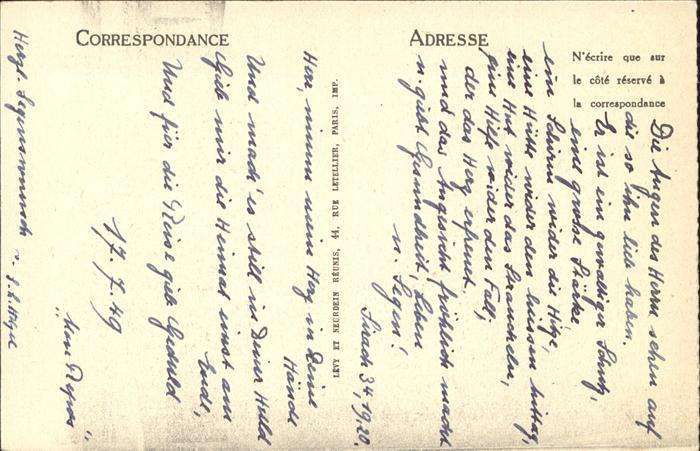 CORRESPONDANCE
ADRESSE
N'écrire que sur
le côté réservé à
la correspondance
LÉVY ET NEURDEIN RÉUNIS, 44, RUE LETELLIER, PARIS, IMP.
Die Augen des Herrn sehen auf
die so ihn lieb haben.
Er ist ein gewaltiger Schutz,
eine große Stärke,
ein Schirm wider die Hitze,
eine Hütte wider den heissen Mittag,
eine Hut wider das Straucheln,
eine Hilfe wider den Fall,
der das Herz erfreut
und das Angesicht fröhlich macht
u. gibt Gesundheit, Leben
u. Segen!
Sirach 34, 19.20.
Herr, nimm mein Herz in Deine
Hände
Und mach' es still in Deiner Huld
Gieb mir die Heimat einst am
Ende,
Und für die Reise gieb Geduld
17.7.49
Herzl. Segenswunsch